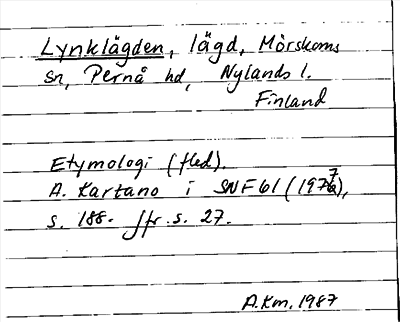 Lynklägden, lägd, Mörskoms
sn, Pernå hd, Nylands l.
Finland
Etymologi (fled).
A. Kartano i SNF 61 (1977),
s. 188. Jfr. s. 27.
A.Km. 1987